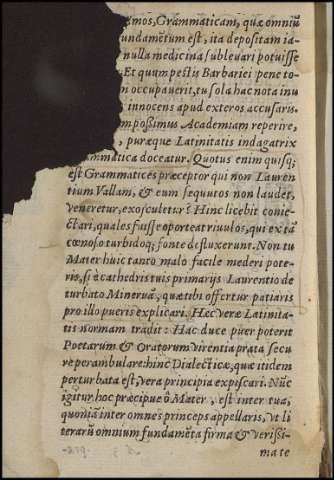 imos, Grammaticam, quæ omniũ
undamẽtum est, ita depositam ia-
nulla medicina subleuari potuisse
Et quum pestis Barbariei pene to-
m occupauerit, tu sola hac nota inu
innocens apud exteros accusaris.
mpoßimus Academiam reperire,
, puræque Latinitatis indagatrix
mmatica doceatur. Quotus enim quisq;
est Grammatices præceptor qui non Lauren
tium Vallam, & eum sequutos non laudet,
veneretur, exosculetur? Hinc licebit conie-
ctari, quales fuisse oporteat riuulos, qui ex tã
cœnoso turbidoq; fonte defluxerunt. Non tu
Mater huic tanto malo facile mederi pote-
ris, si è cathedris tuis primarijs Laurentio de
turbato Minerua, quæ tibi offertur patiaris
pro illo pueris explicari. Hæc vere Latinita-
tis normam tradit: Hac duce puer poterit
Poetarum & Oratorum virentia prata secu
re perambulare: hinc Dialectica, quæ itidem
perturbata est, vera principia expiscari. Nũc
igitur hoc præcipue ô Mater, est inter tua,
quoniã inter omnes princeps appellaris, vt li
terarũ omnium fundamẽta firma & verißi-
mate